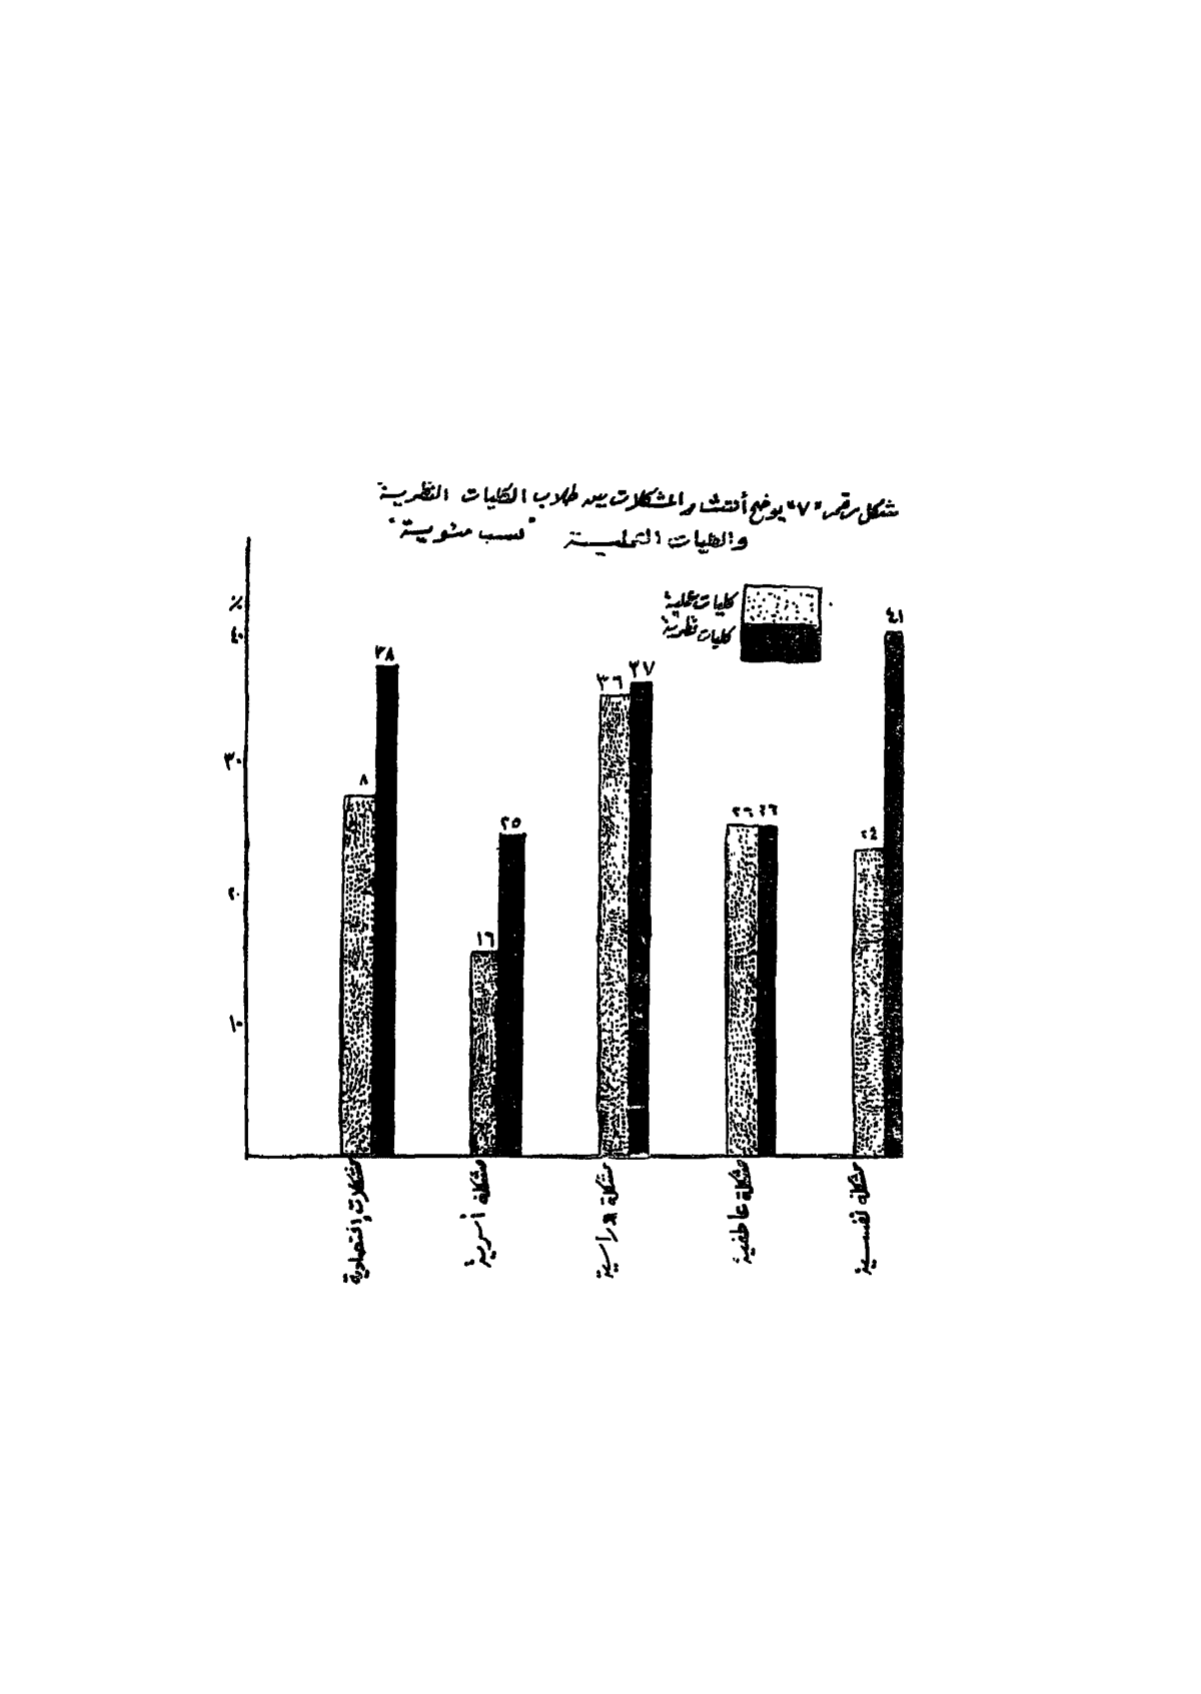 شكل رقم "٧" يوضح أنتشار المشكلات بين طلاب الكليات النظرية
والكليات العملية "نسب مئوية"
كليات عملية
كليات نظرية
%
٤٠
٣٠
٢٠
١٠
٨
٣٨
١٦
٢٥
٣٦
٣٧
٢٦
٢٦
٢٤
٤١
مشكلات إقتصادية
مشكلة أسرية
مشكلة دراسية
مشكلة عاطفية
مشكلة نفسية